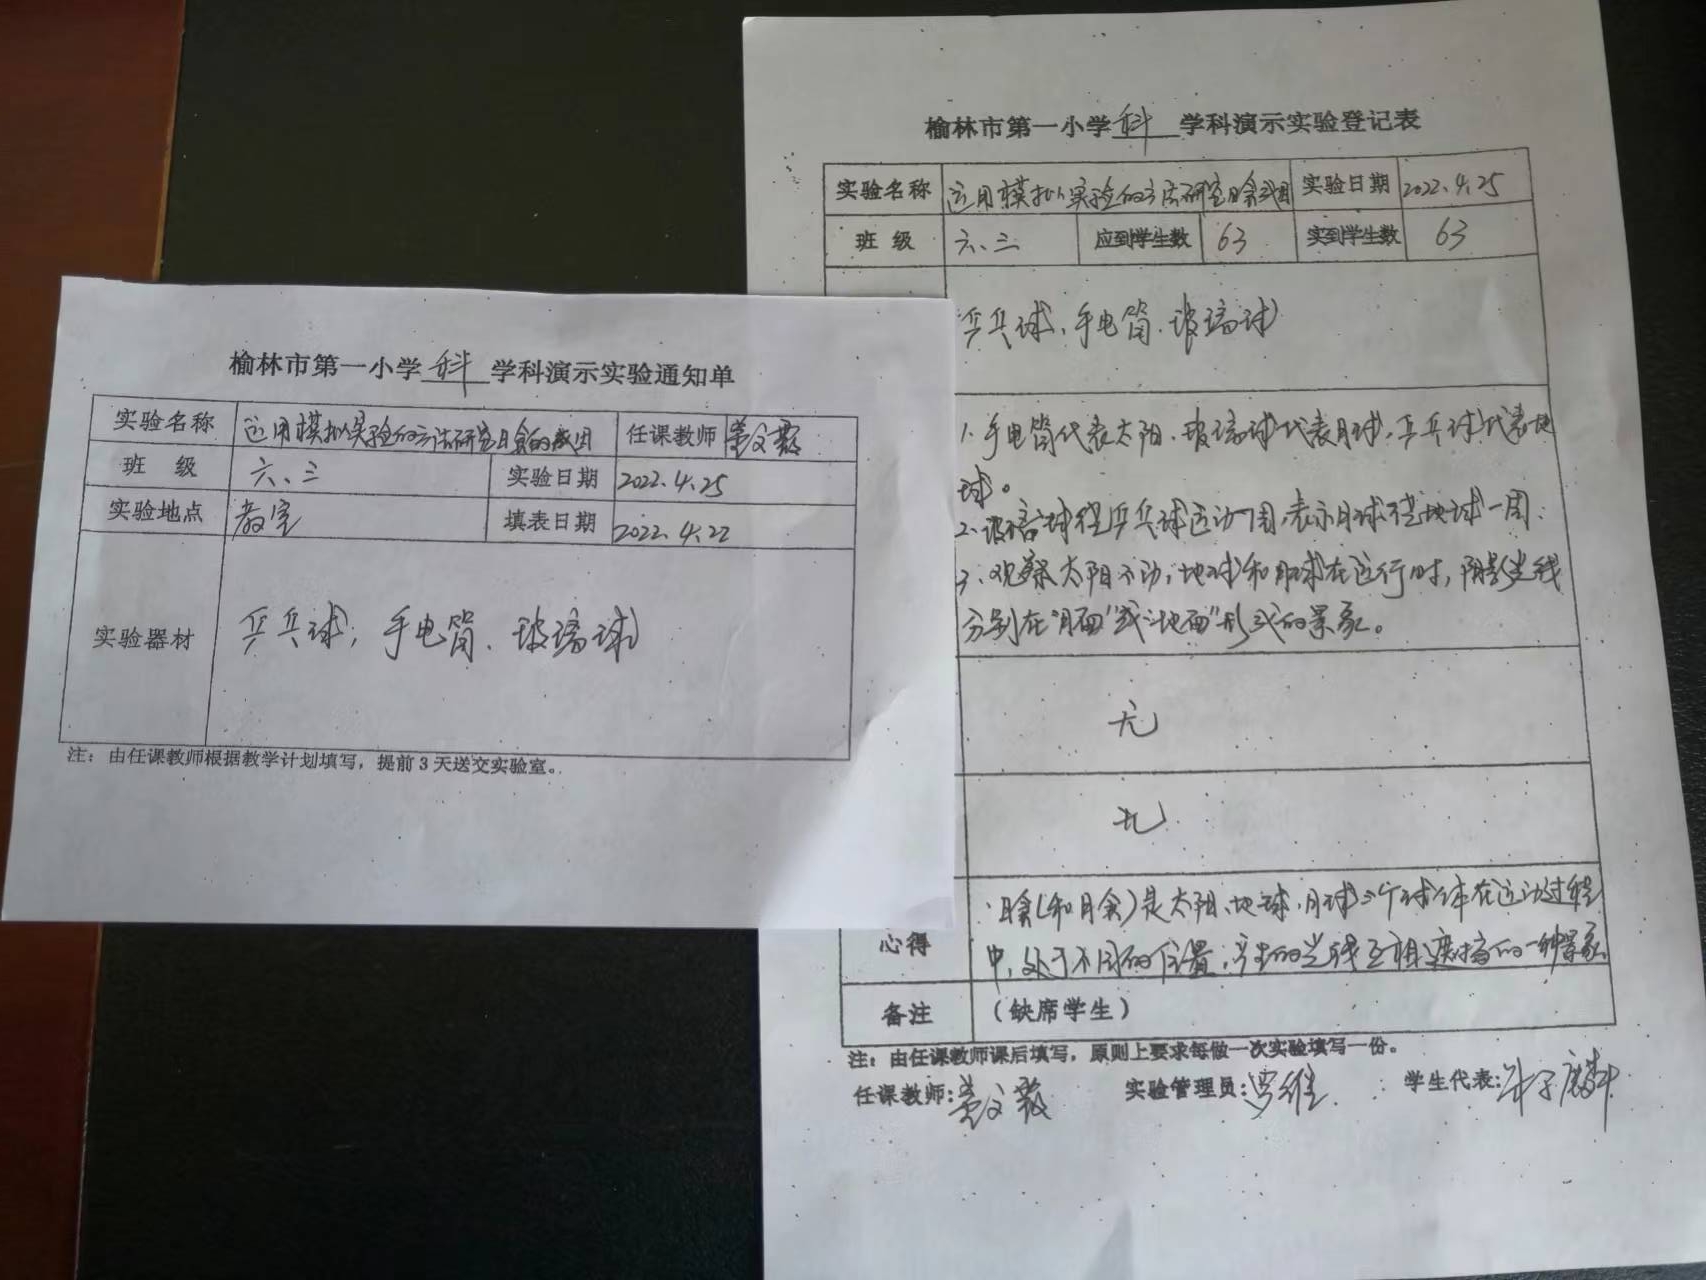 榆林市第一小学科学科演示实验通知单
实验名称 运用模拟实验的方法研究日食的成因 任课教师
班 级 六、三 实验日期 2022.4.25
实验地点 教室 填表日期 2022.4.22
实验器材 乒乓球、手电筒、玻璃球
注：由任课教师根据教学计划填写，提前3天送交实验室。
榆林市第一小学科学科演示实验登记表
实验名称 运用模拟实验的方法研究日食成因 实验日期 2022.4.25
班 级 六、三 应到学生数 63 实到学生数 63
乒乓球、手电筒、玻璃球
1、手电筒代表太阳、玻璃球代表月球，乒乓球代表地
球。
2、玻璃球绕乒乓球运动一周，表示月球绕地球一周；
3、观察太阳不动，地球和月球在运行时，阴影光线
分别在“月面”或“地面”形成的景象。
无
无
日食(和月食)是太阳、地球、月球三个球体在运动过程
心得 中，处于不同的位置，产生的光线互相遮挡的一种景象
备注 （缺席学生）
注：由任课教师课后填写，原则上要求每做一次实验填写一份。
任课教师: 实验管理员:罗维 学生代表: